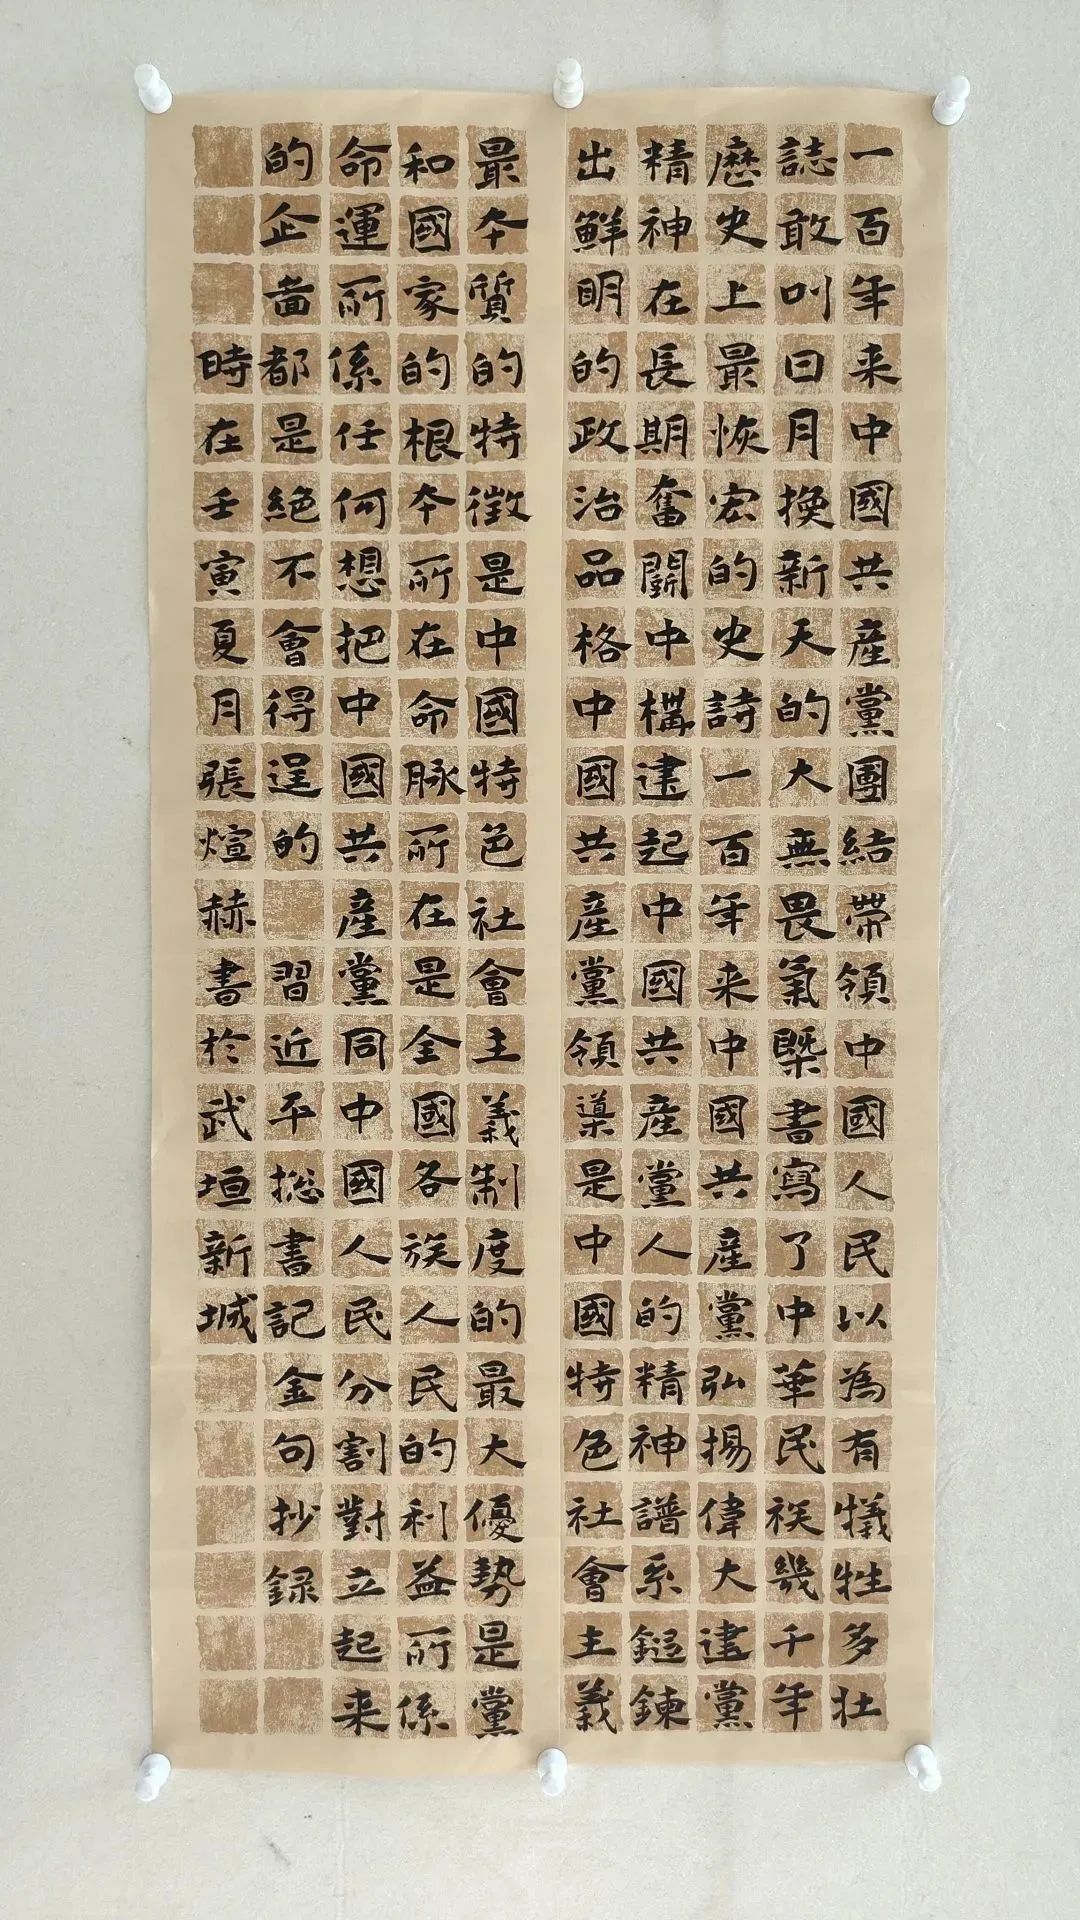 一百年来中國共産黨團結帶領中國人民以為有犧牲多壮
誌敢叫日月換新天的大無畏氣槩書寫了中華民族幾千年
歷史上最恢宏的史詩一百年来中國共産黨弘揚偉大建黨
精神在長期奮鬭中構建起中國共産黨人的精神譜系鎚鍊
出鮮明的政治品格中國共産黨領導是中國特色社會主義
最本質的特徵是中國特色社會主義制度的最大優勢是黨
和國家的根本所在命脉所在是全國各族人民的利益所係
命運所係任何想把中國共産黨同中國人民分割對立起来
的企啚都是絶不會得逞的 習近平揔書記金句抄録
時在壬寅夏月張煊赫書於武垣新城